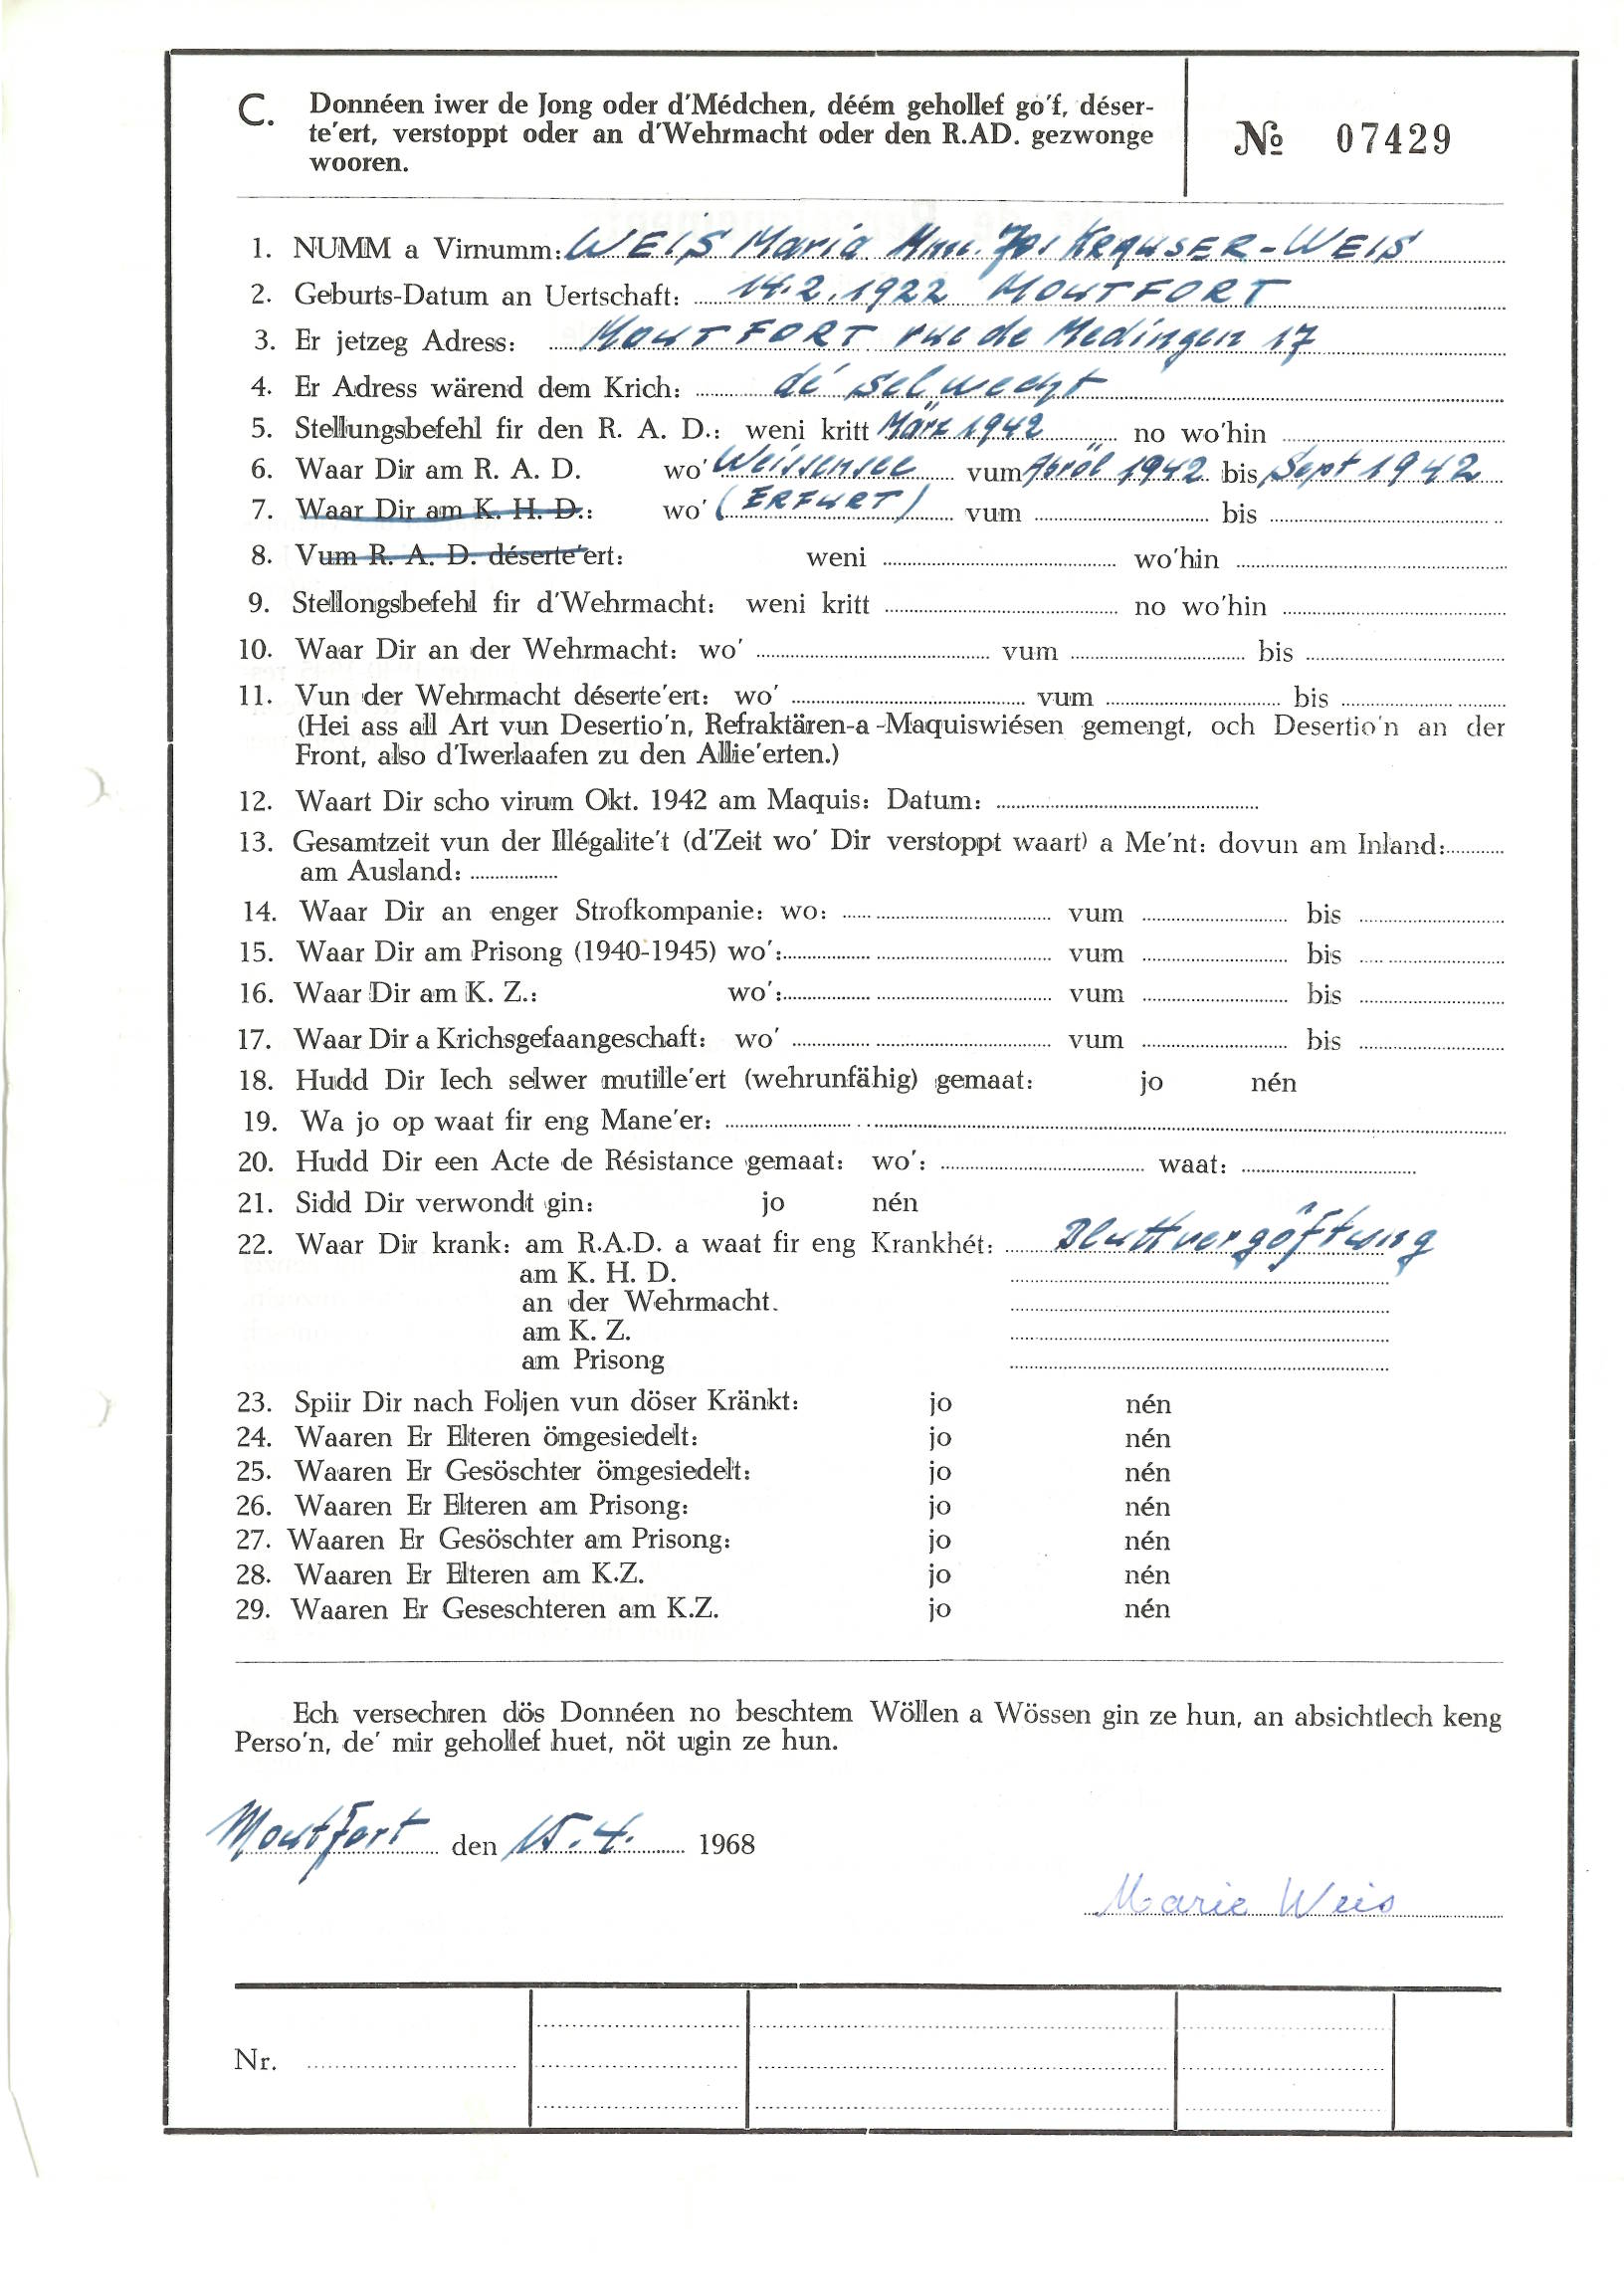 C. Donnéen iwer de Jong oder d'Médchen, déém gehollef go'f, déser-
te'ert, verstoppt oder an d'Wehrmacht oder den R.AD. gezwonge
wooren.
№ 07429
1. NUMM a Virnumm: WEIS Maria Mme. Jos KRAUSER-WEIS
2. Geburts-Datum an Uertschaft: 14.2.1922 MOUTFORT
3. Er jetzeg Adress: MOUTFORT rue de Medingen 17
4. Er Adress wärend dem Krich: dé selwecht
5. Stellungsbefehl fir den R. A. D.: weni kritt März 1942 no wo'hin
6. Waar Dir am R. A. D. wo' Weissensee vum Abröl 1942 bis Sept 1942
7. Waar Dir am K. H. D.: wo' (ERFURT) vum bis
8. Vum R. A. D. déserte'ert: weni wo'hin
9. Stellongsbefehl fir d'Wehrmacht: weni kritt no wo'hin
10. Waar Dir an der Wehrmacht: wo' vum bis
11. Vun der Wehrmacht déserte'ert: wo' vum bis
(Hei ass all Art vun Desertio'n, Refraktären-a-Maquiswiésen gemengt, och Desertio'n an der
Front, also d'Iwerlaafen zu den Allie'erten.)
12. Waart Dir scho virum Okt. 1942 am Maquis: Datum:
13. Gesamtzeit vun der Illégalite't (d'Zeit wo' Dir verstoppt waart) a Me'nt: dovun am Inland:
am Ausland:
14. Waar Dir an enger Strofkompanie: wo: vum bis
15. Waar Dir am Prisong (1940-1945) wo': vum bis
16. Waar Dir am K. Z.: wo': vum bis
17. Waar Dir a Krichsgefaangeschaft: wo' vum bis
18. Hudd Dir Iech selwer mutille'ert (wehrunfähig) gemaat: jo nén
19. Wa jo op waat fir eng Mane'er:
20. Hudd Dir een Acte de Résistance gemaat: wo': waat:
21. Sidd Dir verwondt gin: jo nén
22. Waar Dir krank: am R.A.D. a waat fir eng Krankhét: Bluttvergöftung
am K. H. D.
an der Wehrmacht.
am K. Z.
am Prisong
23. Spiir Dir nach Foljen vun döser Kränkt: jo nén
24. Waaren Er Elteren ömgesiedelt: jo nén
25. Waaren Er Gesöschter ömgesiedelt: jo nén
26. Waaren Er Elteren am Prisong: jo nén
27. Waaren Er Gesöschter am Prisong: jo nén
28. Waaren Er Elteren am K.Z. jo nén
29. Waaren Er Geseschteren am K.Z. jo nén
Ech versechren dös Donnéen no beschtem Wöllen a Wössen gin ze hun, an absichtlech keng
Perso'n, de' mir gehollef huet, nöt ugin ze hun.
Moutfort den 15.4. 1968
Marie Weis
Nr.